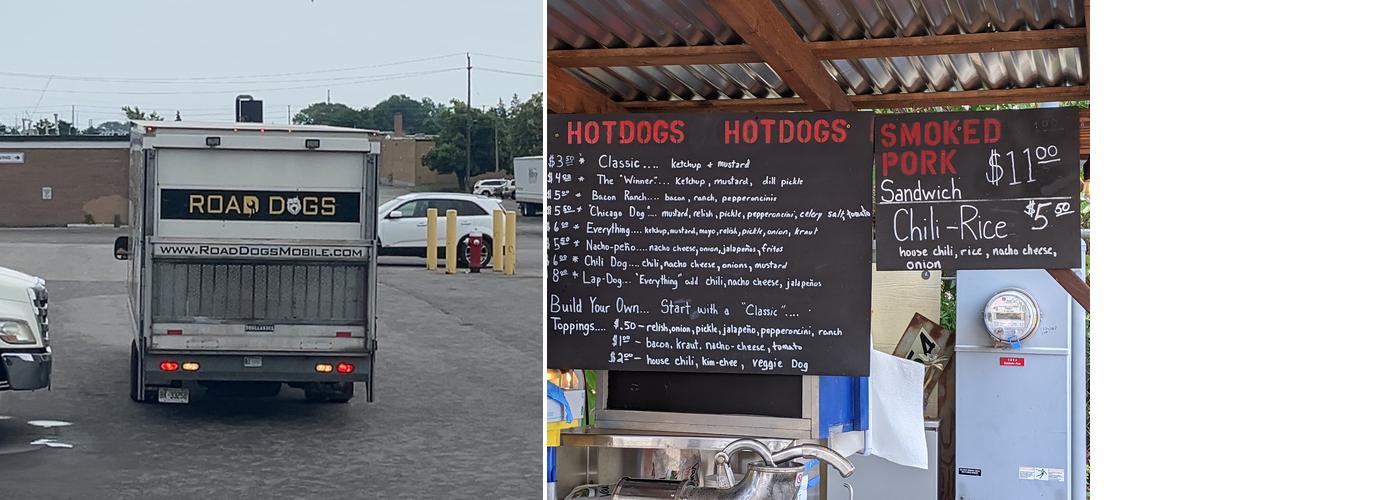 ROAD DOGS
WWW.ROADDOGSMOBILE.COM
HOTDOGS HOTDOGS
$3.50 * Classic.... ketchup + mustard
* The "Winner".... Ketchup, mustard, dill pickle
* Bacon Ranch.... bacon, ranch, pepperoncinis
* "Chicago Dog".... mustard, relish, pickle, pepperoncini, celery salt, tomato
* Everything.... ketchup, mustard, mayo, relish, pickle, onion, kraut
* Nacho-peño.... nacho cheese, onion, jalapeños, fritos
* Chili Dog.... chili, nacho cheese, onions, mustard
* Lap-Dog... "Everything" add chili, nacho cheese, jalapeños
Build Your Own... Start with a "Classic"....
Toppings.... $.50 – relish, onion, pickle, jalapeño, pepperoncini, ranch
$1.00 – bacon, kraut, nacho-cheese, tomato
$2.00 – house chili, kim-chee, veggie Dog
SMOKED
PORK $11.00
Sandwich
Chili-Rice $5.50
house chili, rice, nacho cheese,
onion
4